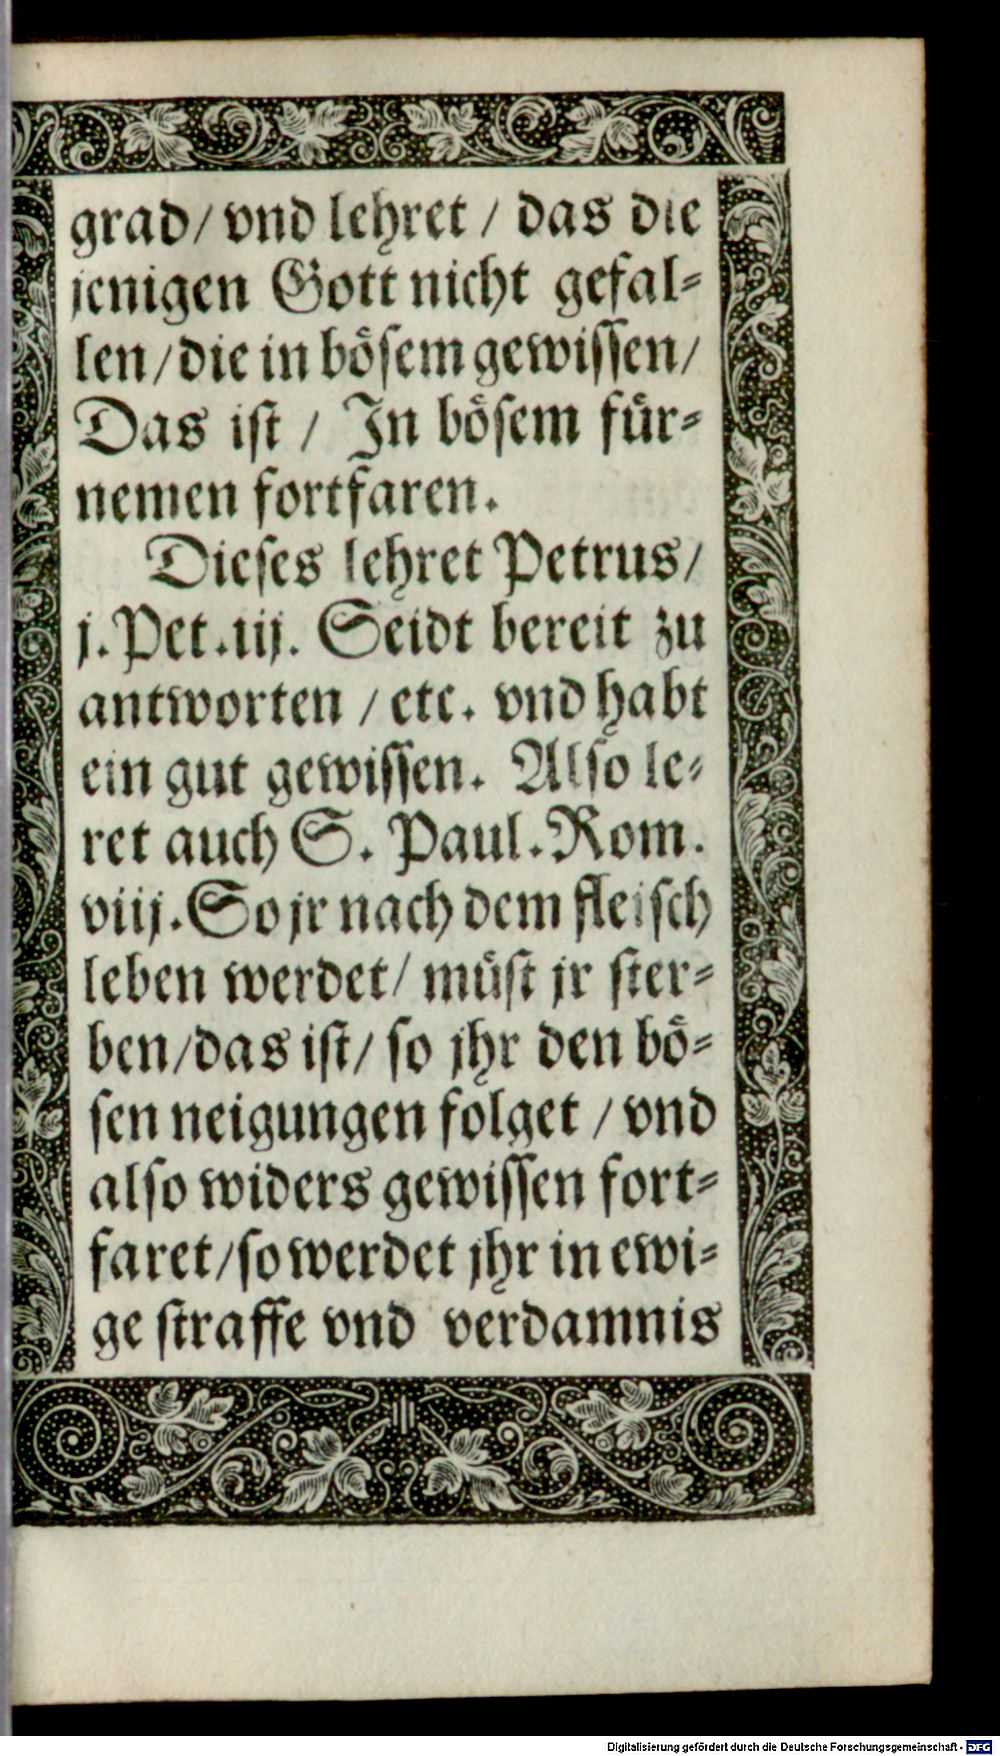 grad/ vnd lehret / das die
jenigen Gott nicht gefal⸗
len/die in bösem gewissen/
Das ist / In bösem für⸗
nemen fortfaren.
Dieses lehret Petrus/
j. Pet.iij. Seidt bereit zu
antworten /etc. vnd habt
ein gut gewissen. Also le⸗
ret auch S. Paul. Rom.
viij. So jr nach dem fleisch
leben werdet/ müst jr ster⸗
ben/das ist/ so jhr den bö⸗
sen neigungen folget / vnd
also widers gewissen fort⸗
faret/so werdet jhr in ewi⸗
ge straffe vnd verdamnis
Digitalisierung gefördert durch die Deutsche Forschungsgemeinschaft - DFG